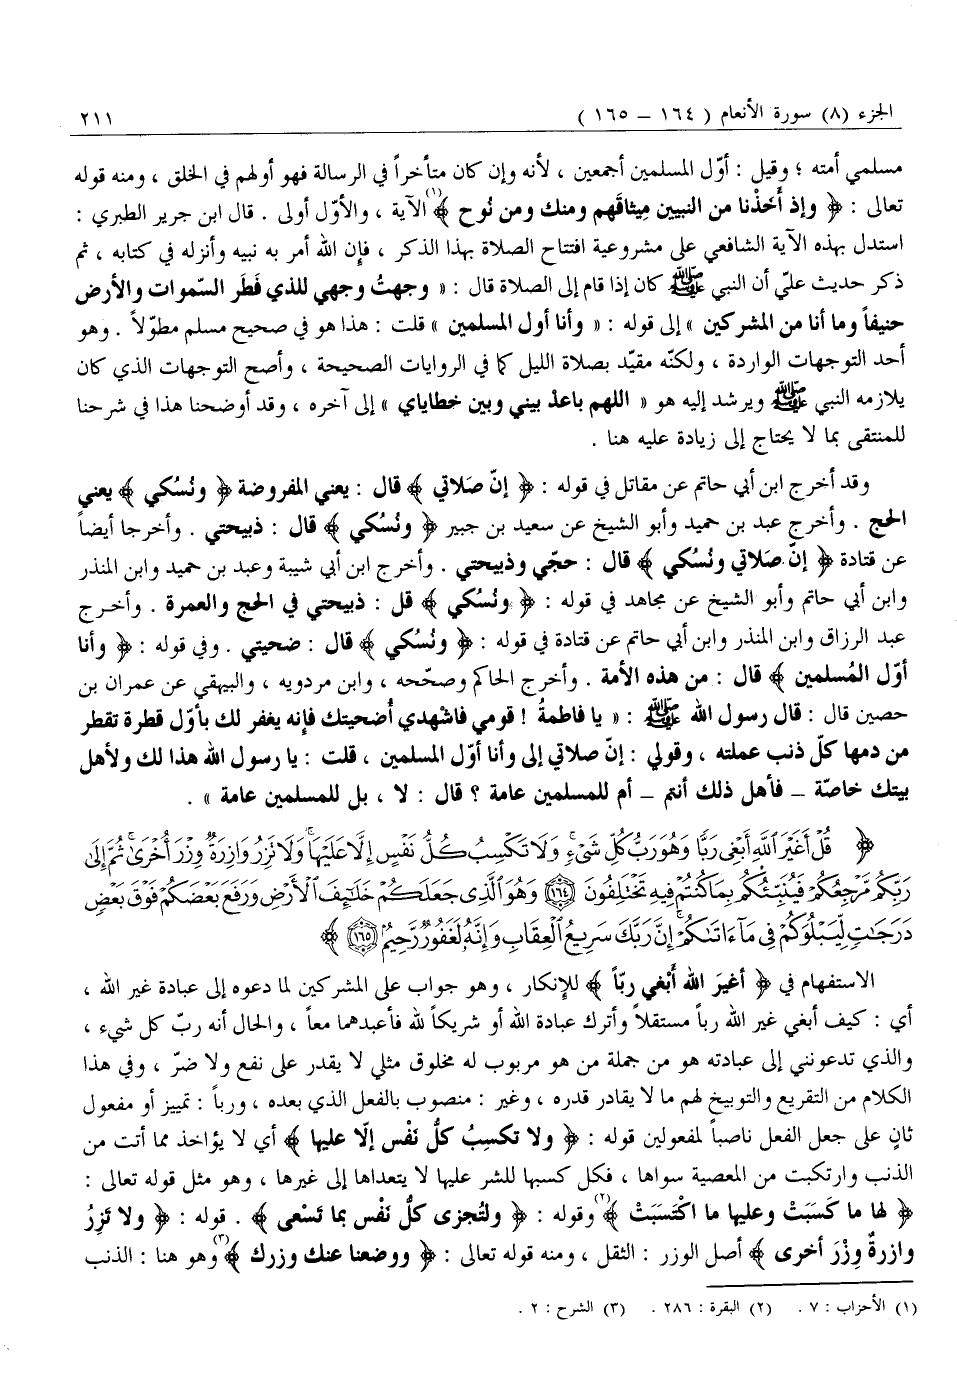 الجزء (٨) سورة الأنعام ( ١٦٤ – ١٦٥ ) ٢١١
مسلمي أمته ؛ وقيل : أوّل المسلمين أجمعين ، لأنه وإن كان متأخراً في الرسالة فهو أولهم في الخلق ، ومنه قوله
تعالى : ﴿ وإذ أَخَذْنا من النبيين مِيثاقَهم ومنك ومن نُوح ﴾(١) الآية ، والأوّل أولى . قال ابن جرير الطبري :
استدل بهذه الآية الشافعي على مشروعية افتتاح الصلاة بهذا الذكر ، فإن الله أمر به نبيه وأنزله في كتابه ، ثم
ذكر حديث عليّ أن النبي ﷺ كان إذا قام إلى الصلاة قال : « وجهتُ وجهي للذي فَطَر السّموات والأرض
حنيفاً وما أنا من المشركين » إلى قوله : « وأنا أول المسلمين » قلت : هذا هو في صحيح مسلم مطوّلاً . وهو
أحد التوجهات الواردة ، ولكنّه مقيّد بصلاة الليل كما في الروايات الصحيحة ، وأصح التوجهات الذي كان
يلازمه النبي ﷺ ويرشد إليه هو « اللهم باعدْ بيني وبين خطاياي » إلى آخره ، وقد أوضحنا هذا في شرحنا
للمنتقى بما لا يحتاج إلى زيادة عليه هنا .
وقد أخرج ابن أبي حاتم عن مقاتل في قوله : ﴿ إنّ صَلاتي ﴾ قال : يعني المفروضة ﴿ ونُسُكي ﴾ يعني
الحج . وأخرج عبد بن حميد وأبو الشيخ عن سعيد بن جبير ﴿ ونُسُكي ﴾ قال : ذبيحتي . وأخرجا أيضاً
عن قتادة ﴿ إنّ صَلاتي ونُسُكي ﴾ قال : حجّي وذبيحتي . وأخرج ابن أبي شيبة وعبد بن حميد وابن المنذر
وابن أبي حاتم وأبو الشيخ عن مجاهد في قوله : ﴿ ونُسُكي ﴾ قل : ذبيحتي في الحج والعمرة . وأخرج
عبد الرزاق وابن المنذر وابن أبي حاتم عن قتادة في قوله : ﴿ ونُسُكي ﴾ قال : ضحيتي . وفي قوله : ﴿ وأنا
أوّل المُسلمين ﴾ قال : من هذه الأمة . وأخرج الحاكم وصحّحه ، وابن مردويه ، والبيهقي عن عمران بن
حصين قال : قال رسول الله ﷺ : « يا فاطمةُ ! قومي فاشهدي أُضحيتك فإنه يغفر لك بأوّل قطرة تقطر
من دمها كلّ ذنب عملته ، وقولي : إنّ صلاتي إلى وأنا أوّل المسلمين ، قلت : يا رسول الله هذا لك ولأهل
بيتك خاصّة – فأهل ذلك أنتم – أم للمسلمين عامة ؟ قال : لا ، بل للمسلمين عامة » .
﴿ قُلْ أَغَيْرَ ٱللَّهِ أَبْغِى رَبًّا وَهُوَ رَبُّ كُلِّ شَىْءٍ ۚ وَلَا تَكْسِبُ كُلُّ نَفْسٍ إِلَّا عَلَيْهَا ۚ وَلَا تَزِرُ وَازِرَةٌ وِزْرَ أُخْرَىٰ ۚ ثُمَّ إِلَىٰ
رَبِّكُم مَّرْجِعُكُمْ فَيُنَبِّئُكُم بِمَا كُنتُمْ فِيهِ تَخْتَلِفُونَ ﴿١٦٤﴾ وَهُوَ ٱلَّذِى جَعَلَكُمْ خَلَٰٓئِفَ ٱلْأَرْضِ وَرَفَعَ بَعْضَكُمْ فَوْقَ بَعْضٍ
دَرَجَٰتٍ لِّيَبْلُوَكُمْ فِى مَآ ءَاتَىٰكُمْ ۗ إِنَّ رَبَّكَ سَرِيعُ ٱلْعِقَابِ وَإِنَّهُۥ لَغَفُورٌ رَّحِيمٌ ﴿١٦٥﴾ ﴾
الاستفهام في ﴿ أغيرَ الله أَبْغي ربّاً ﴾ للإنكار ، وهو جواب على المشركين لما دعوه إلى عبادة غير الله ،
أي : كيف أبغي غير الله رباً مستقلاً وأترك عبادة الله أو شريكاً لله فأعبدهما معاً ، والحال أنه ربّ كل شيء ،
والذي تدعونني إلى عبادته هو من جملة من هو مربوب له مخلوق مثلي لا يقدر على نفع ولا ضرّ ، وفي هذا
الكلام من التقريع والتوبيخ لهم ما لا يقادر قدره ، وغير : منصوب بالفعل الذي بعده ، ورباً : تمييز أو مفعول
ثانٍ على جعل الفعل ناصباً لمفعولين قوله : ﴿ ولا تكسِبُ كلُّ نَفْس إلّا عليها ﴾ أي لا يؤاخذ مما أتت من
الذنب وارتكبت من المعصية سواها ، فكل كسبها للشر عليها لا يتعداها إلى غيرها ، وهو مثل قوله تعالى :
﴿ لها ما كَسَبَتْ وعليها ما اكْتَسَبَتْ ﴾(٢) وقوله : ﴿ ولتُجزى كلُّ نَفْس بما تَسْعى ﴾ . قوله : ﴿ ولا تَزِرُ
وازرةٌ وِزْرَ أخرى ﴾ أصل الوزر : الثقل ، ومنه قوله تعالى : ﴿ ووضعنا عنك وزرك ﴾(٣) وهو هنا : الذنب
(١) الأحزاب : ٧ . (٢) البقرة : ٢٨٦ . (٣) الشرح : ٢ .